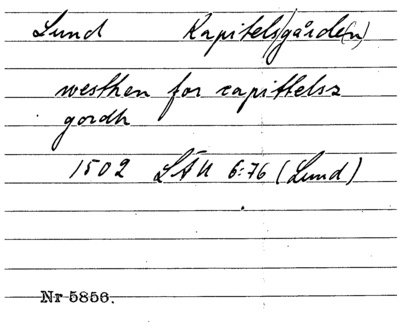 Lund Kapitels/gårde(n)
westhen for capittelsz
gordh
1502 LÄU 6:76 (Lund)
Nr 5856.